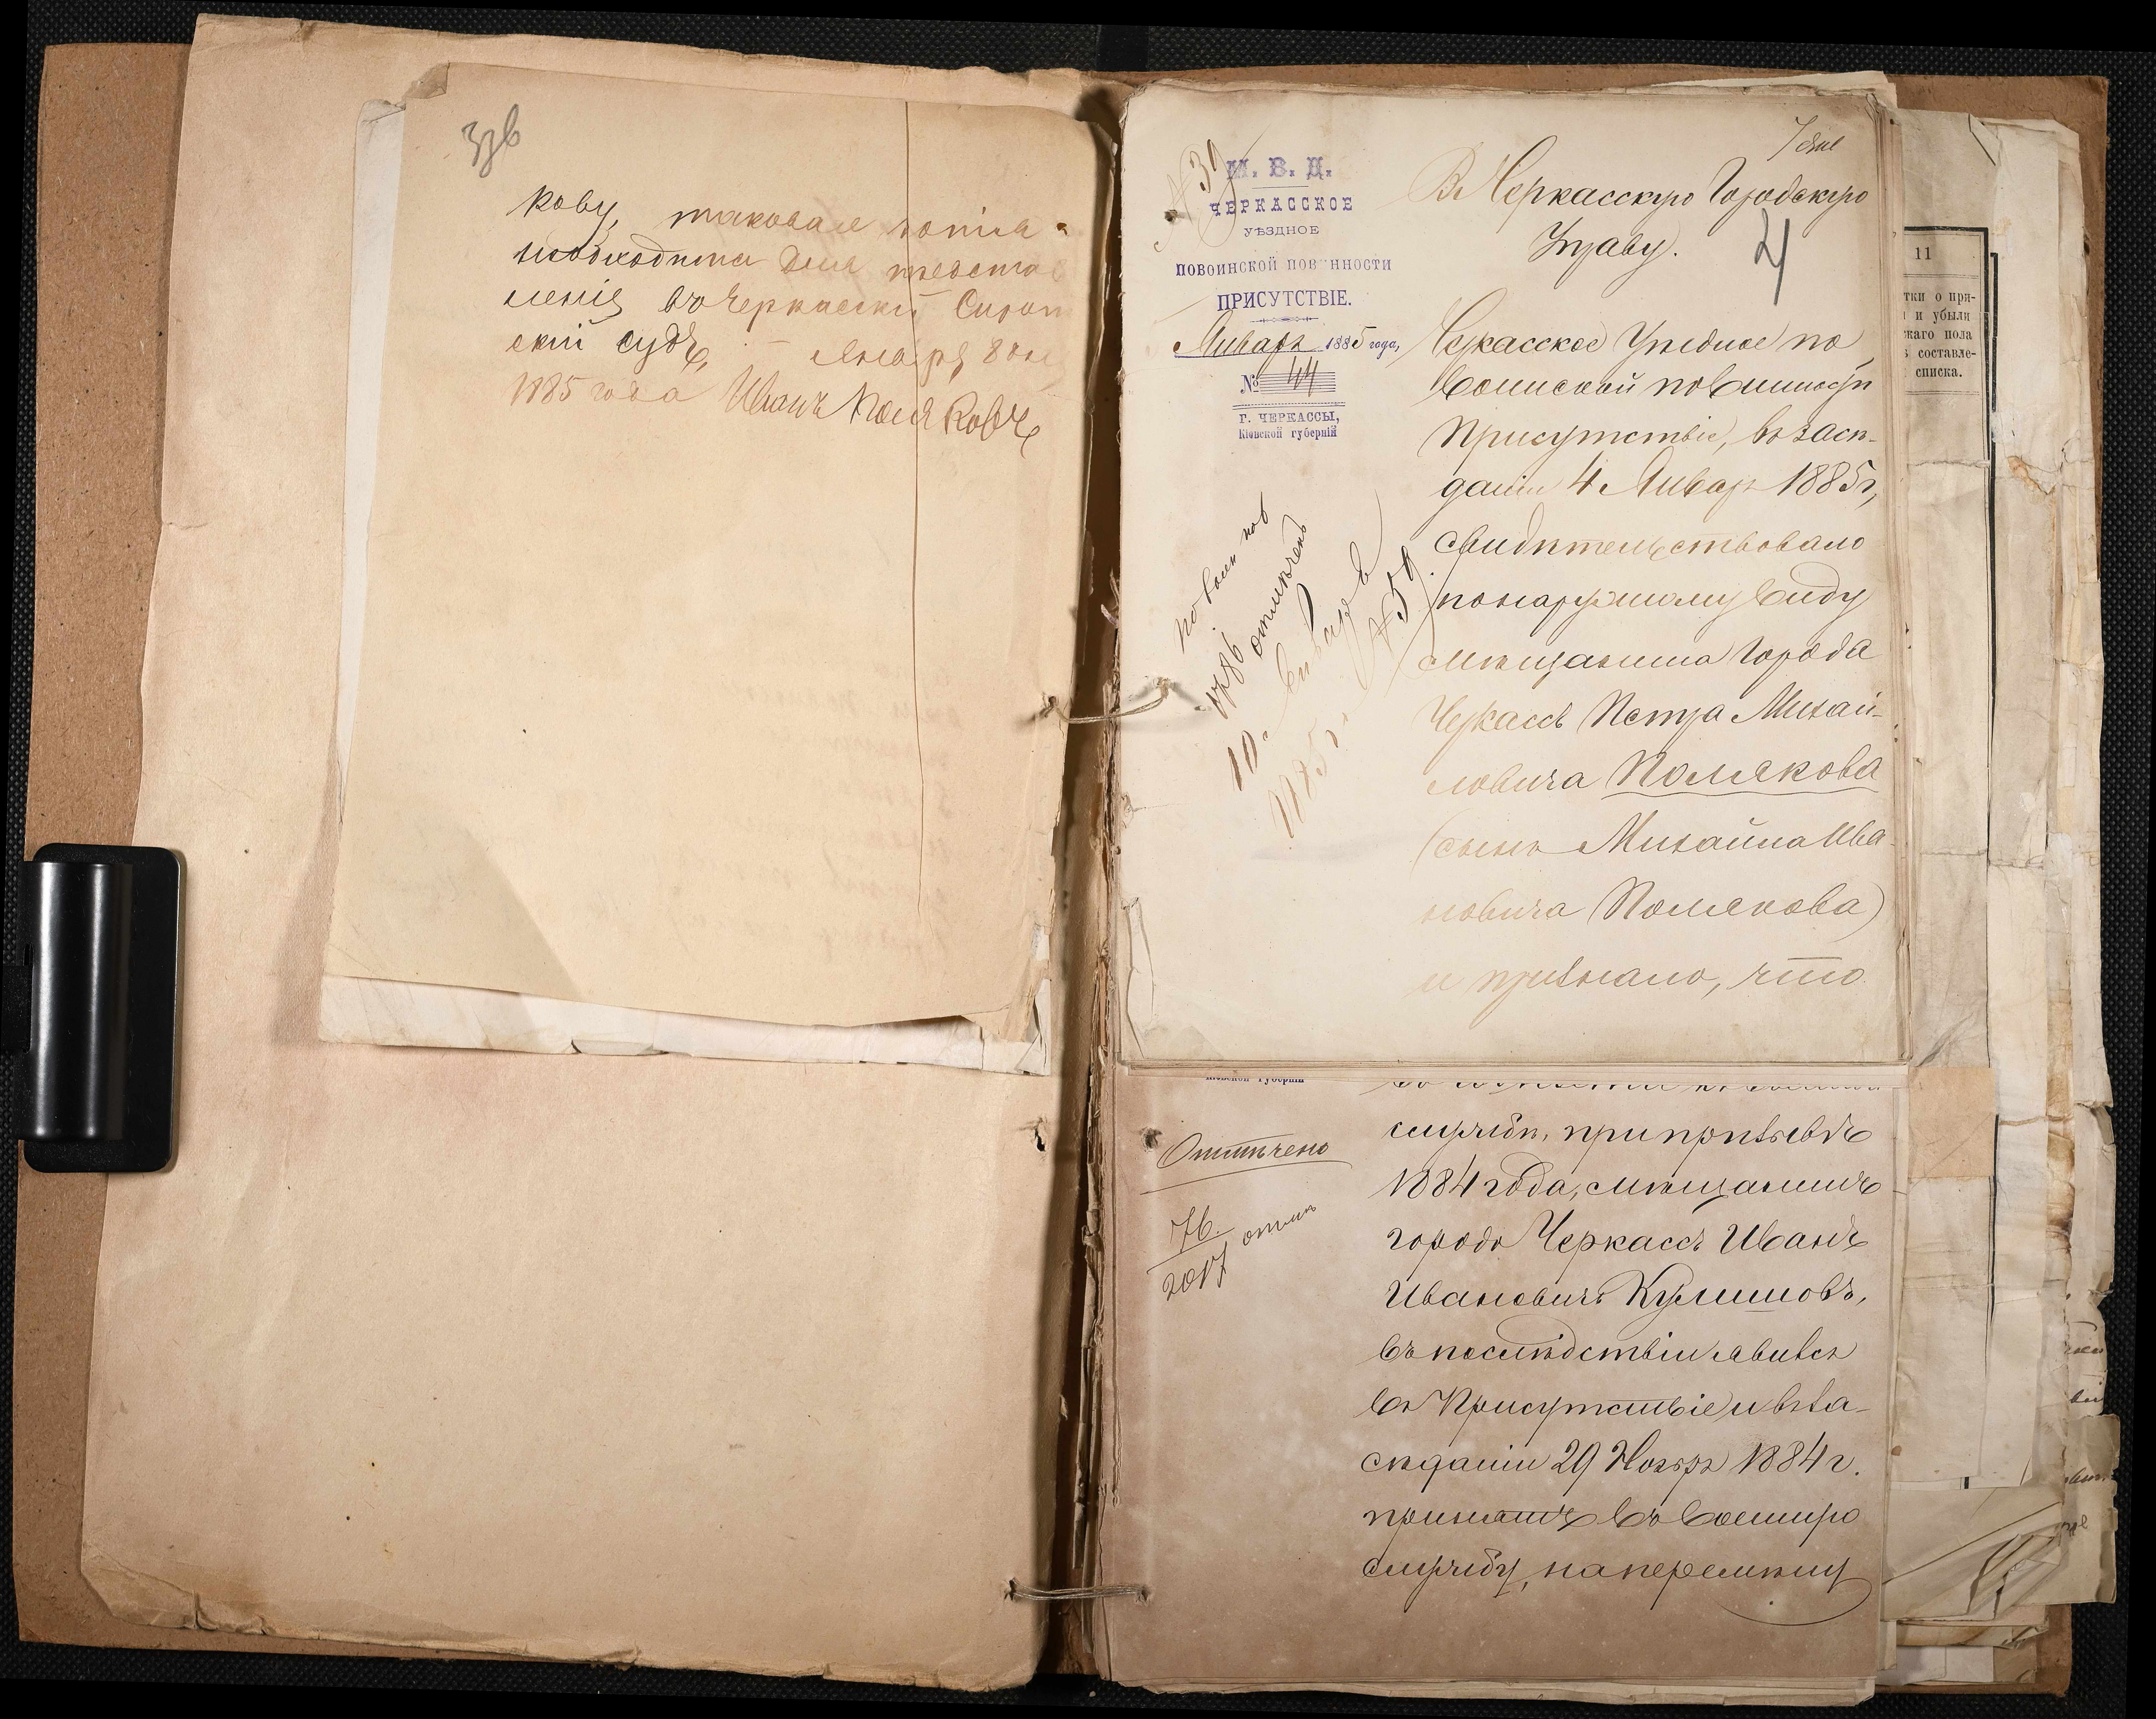 кову, таковая копія
необходима для представ
ленія въ Черкаскій Сирот
скій судъ, – Января 8 дня
1885 года Иванъ Поляковъ
М. В. Д.
ЧЕРКАССКОЕ
УѢЗДНОЕ
ПОВОИНСКОЙ ПОВИННОСТИ
ПРИСУТСТВІЕ.
Январь 1885 года,
№ 44
Г. ЧЕРКАССЫ,
Кіевской губерніи
отмѣченъ
10 января
1885 г.
№ 59
Въ Черкасскую Городскую
Управу.
4
Черкасское Уѣздное по
воинской повинности
Присутствіе, въ засѣ-
даніи 4 Январ 1885 г,
свидѣтельствовало
по наружному виду
мѣщанина города
Черкассъ Петра Михай-
ловича Полякова
(сынъ Михаила Ива-
новича Полякова)
и признало, что
Кіевской губерніи
Отмѣчено
76.
2017
службы, при призывѣ
1884 года, мѣщанинъ
города Черкассъ Иванъ
Ивановичъ Кулишовъ,
въ послѣдствіи явился
въ Присутствіе и въ за-
сѣданіи 29 Ноябр 1884 г.
принятъ въ военную
службу, на перемѣну
11
тки о при-
и убыли
жаго пола
составле-
списка.